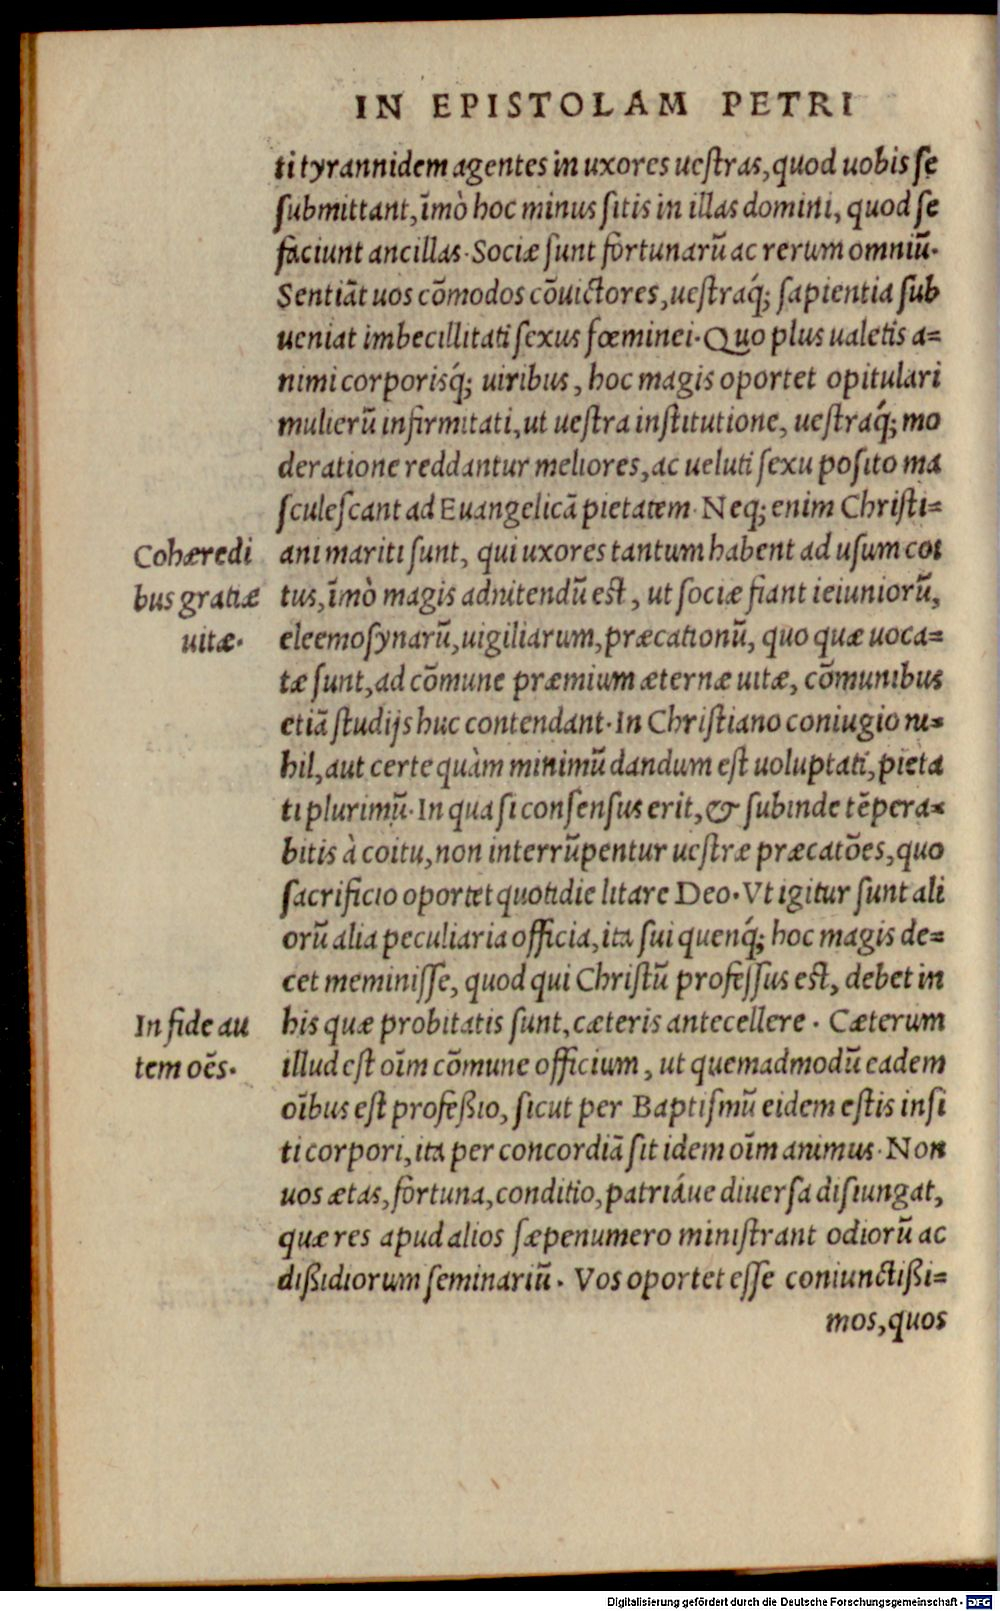 IN EPISTOLAM PETRI
ti tyrannidem agentes in uxores uestras, quod uobis se
submittant, īmò hoc minus sitis in illas domini, quod se
faciunt ancillas. Sociæ sunt fortunarū ac rerum omniū.
Sentiāt uos cōmodos cōuictores, uestraq́; sapientia sub
ueniat imbecillitati sexus fœminei. Quo plus ualetis a=
nimi corporisq́; uiribus, hoc magis oportet opitulari
mulierū infirmitati, ut uestra institutione, uestraq́; mo
deratione reddantur meliores, ac ueluti sexu posito ma
sculescant ad Euangelicā pietatem. Neq; enim Christi=
Cohæredi
bus gratiæ
uitæ.
ani mariti sunt, qui uxores tantum habent ad usum coi
tus, īmò magis adnitendū est, ut sociæ fiant ieiuniorū,
eleemosynarū, uigiliarum, præcationū, quo quæ uoca=
tæ sunt, ad cōmune præmium æternæ uitæ, cōmunibus
etiā studijs huc contendant. In Christiano coniugio ni=
hil, aut certe quàm minimū dandum est uoluptati, pieta
ti plurimū. In qua si consensus erit, & subinde tēpera=
bitis à coitu, non interrūpentur uestræ præcatōes, quo
sacrificio oportet quotidie litare Deo. Vt igitur sunt ali
orū alia peculiaria officia, ita sui quenq́; hoc magis de=
cet meminisse, quod qui Christū professus est, debet in
In fide au
tem oēs.
his quæ probitatis sunt, cæteris antecellere. Cæterum
illud est oīm cōmune officium, ut quemadmodū eadem
oībus est profeßio, sicut per Baptismū eidem estis insi
ti corpori, ita per concordiā sit idem oīm animus. Non
uos ætas, fortuna, conditio, patriáue diuersa disiungat,
quæ res apud alios sæpenumero ministrant odiorū ac
dißidiorum seminariū. Vos oportet esse coniunctißi=
mos, quos
Digitalisierung gefördert durch die Deutsche Forschungsgemeinschaft - DFG